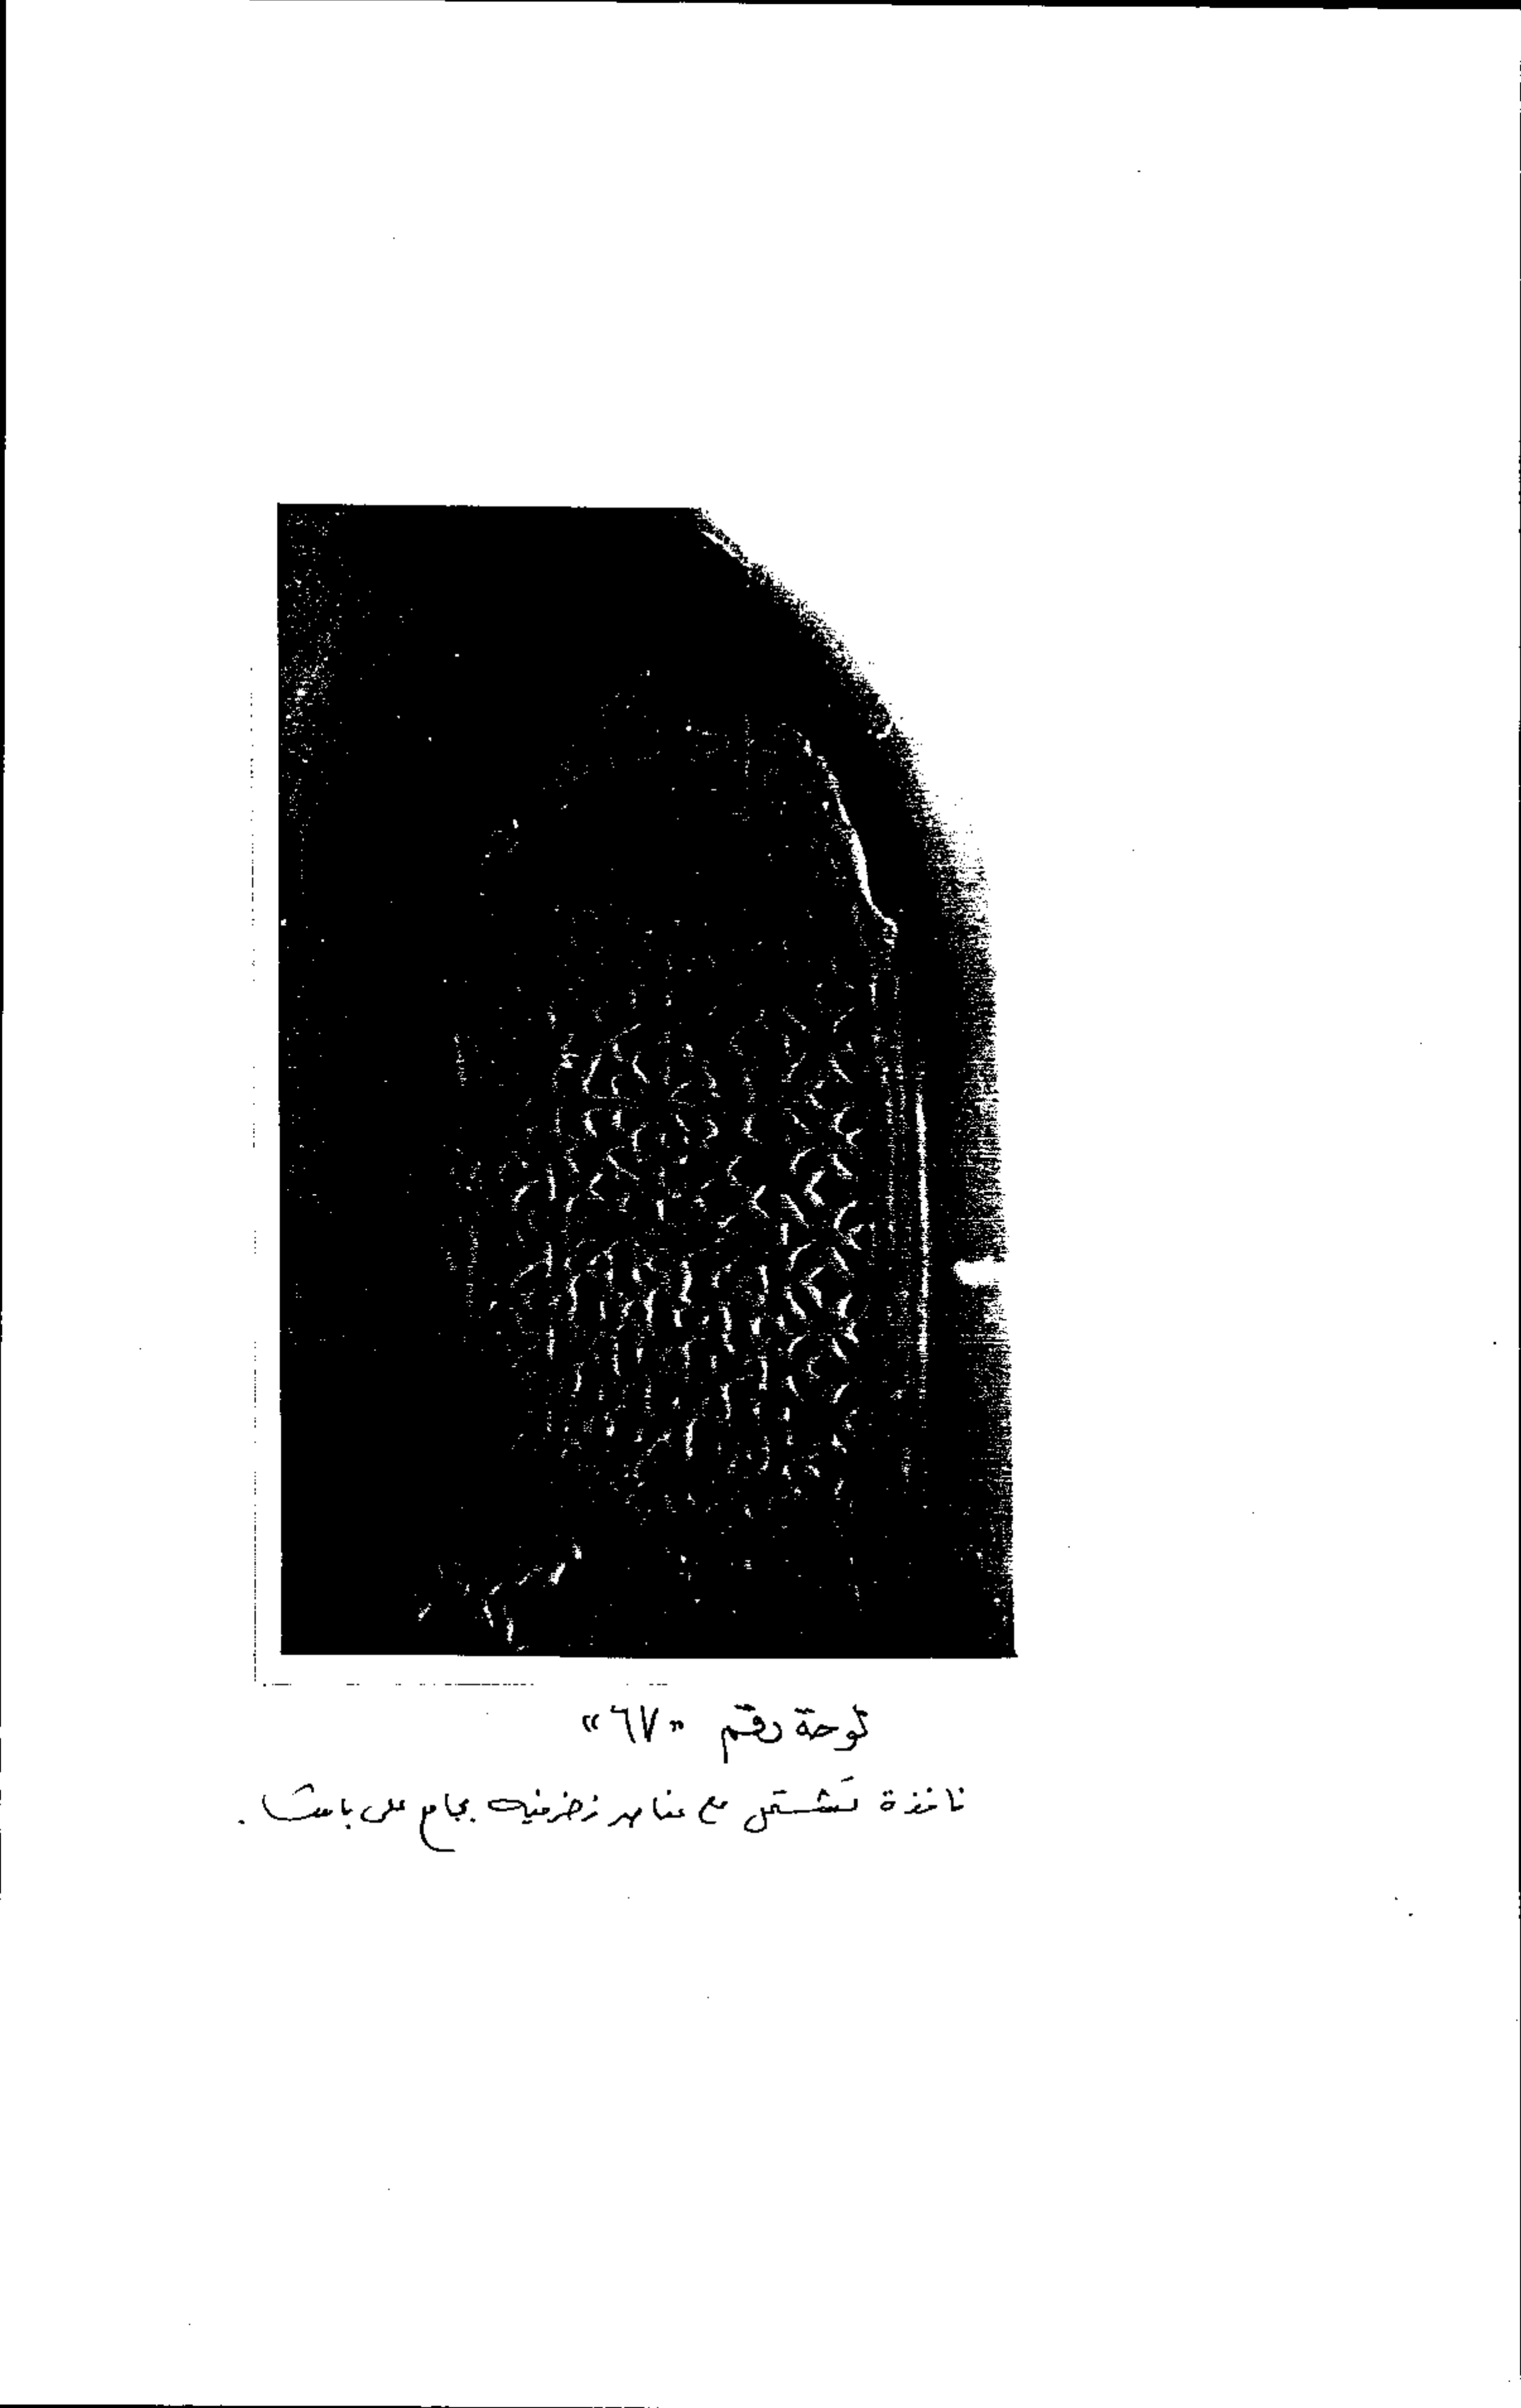 لوحة رقم «٦٧»
نافذة تشتمل مع عناصر زخرفيه بجامع على باشا.